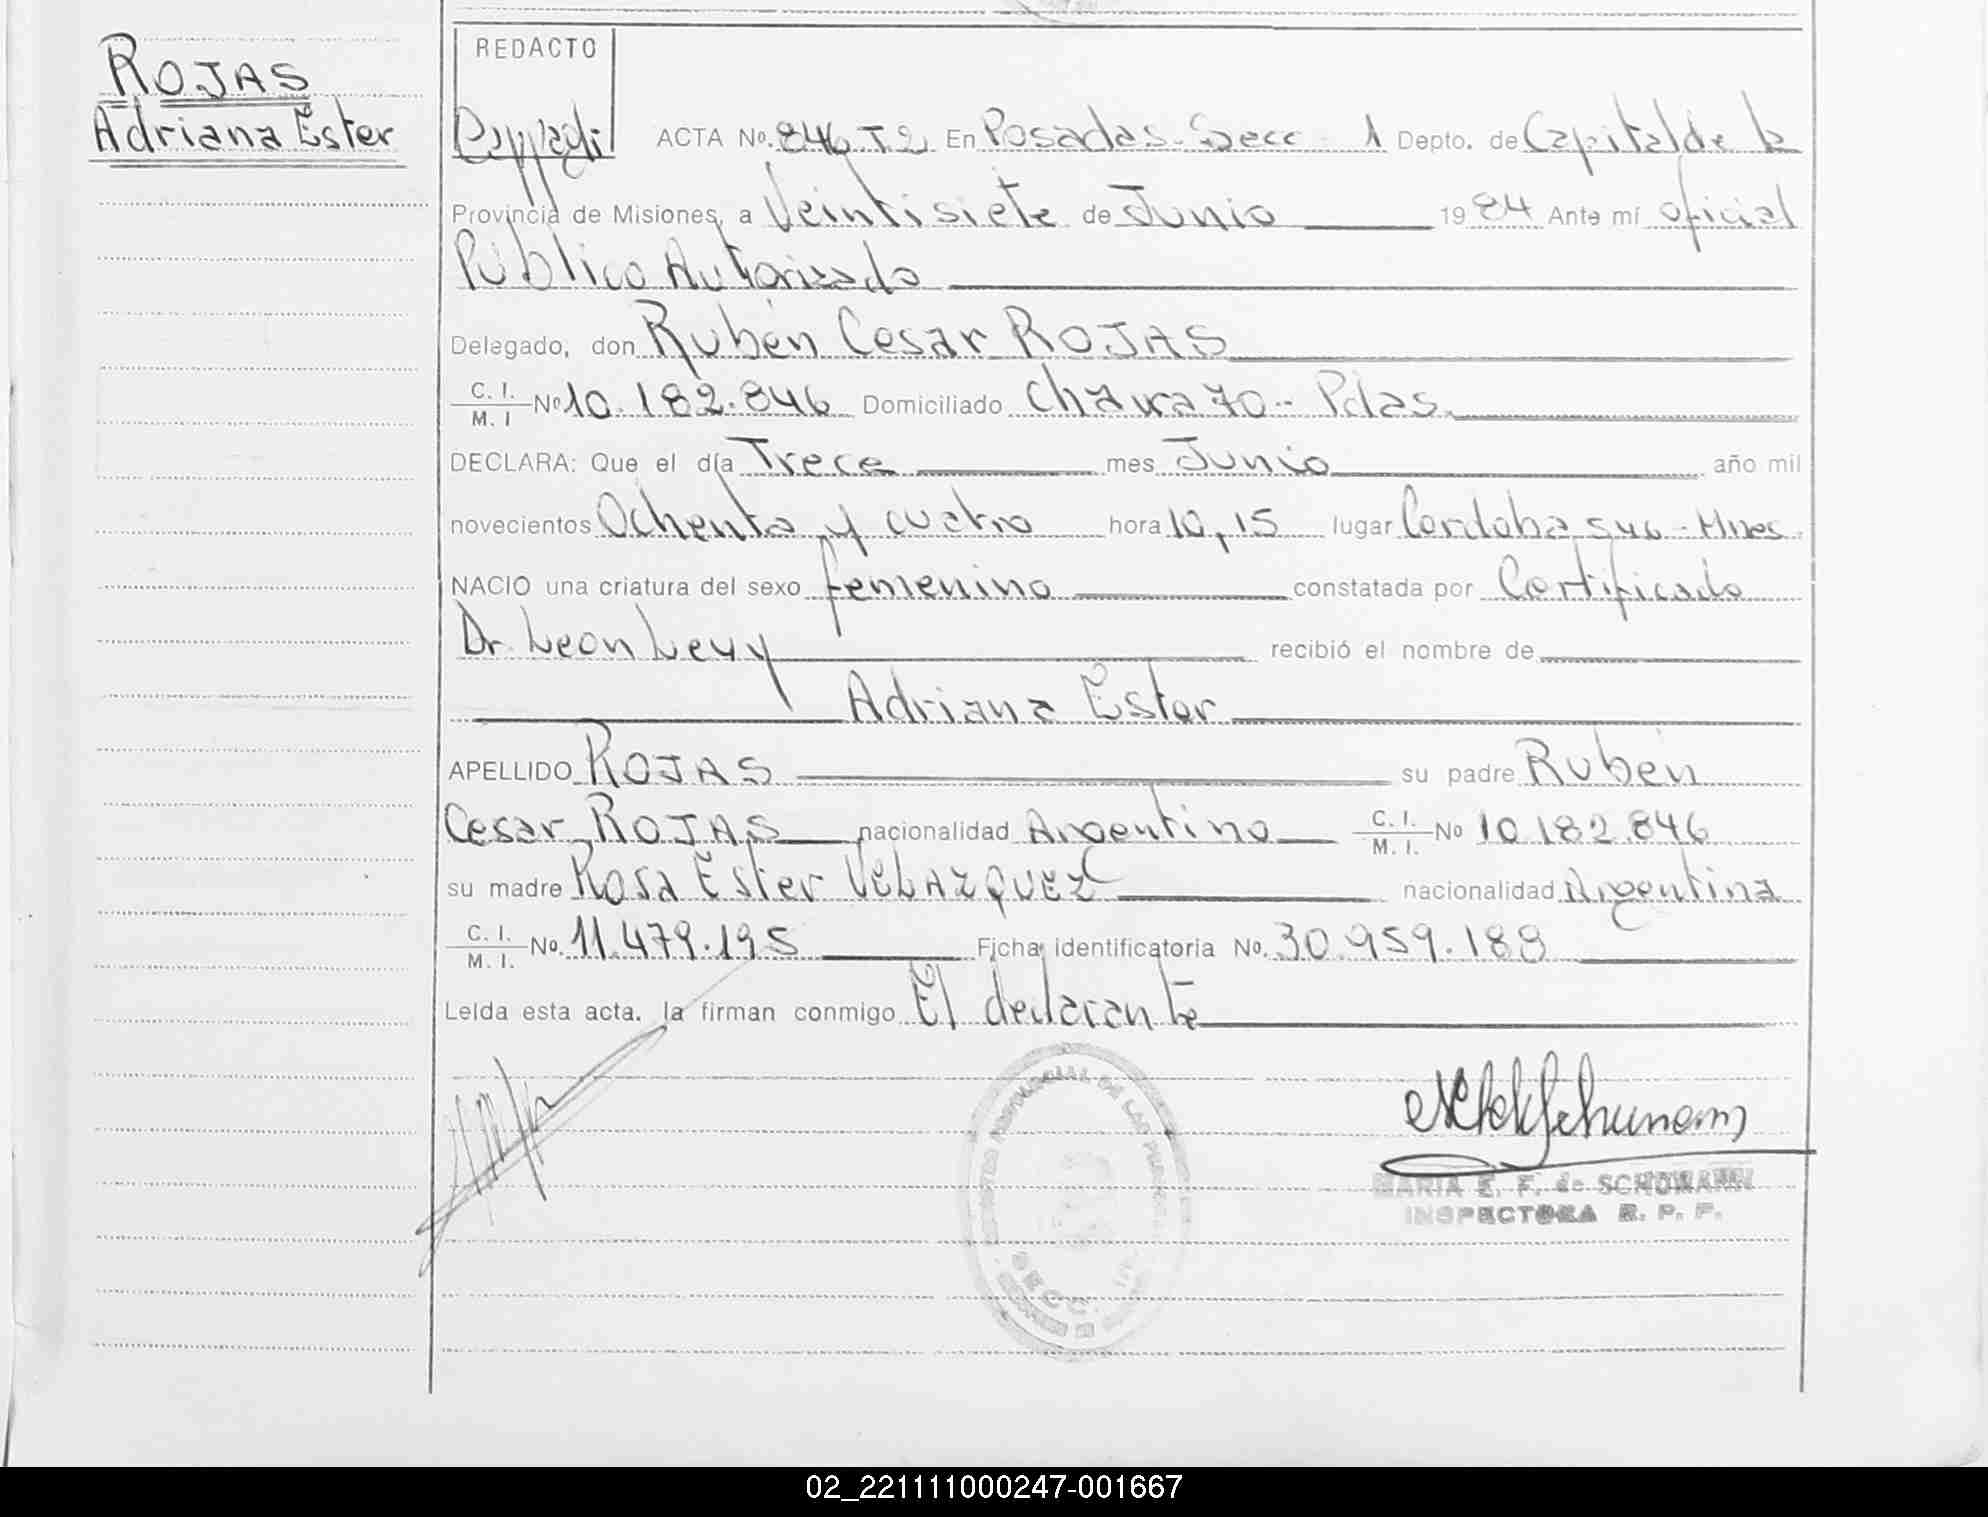 ROJAS
Adriana Ester
REDACTO
ACTA Nº. 846 T2 En Posadas - Secc - 1 Depto. de Capital de la
Provincia de Misiones, a Veintisiete de Junio 1984 Ante mí oficial
Público Autorizado
Delegado, don Rubén Cesar ROJAS
C. I. / M. I Nº 10.182.846 Domiciliado 70 - Pdas.
DECLARA: Que el día Trece mes Junio año mil
novecientos Ochenta y cuatro hora 10,15 lugar Cordoba 546 - Mnes.
NACIO una criatura del sexo femenino constatada por Certificado
Dr. Leon Levy recibió el nombre de
Adriana Ester
APELLIDO ROJAS su padre Rubén
Cesar ROJAS nacionalidad Argentino C. I. / M. I. No 10.182.846
su madre Rosa Ester VELAZQUEZ nacionalidad Argentina
C. I. / M. I. No. 11.479.195 Ficha identificatoria No. 30.959.188
Leída esta acta, la firman conmigo El declarante
REGISTRO PROVINCIAL DE LAS PERSONAS
SECC.
MARIA E. F. de SCHUMANN
INSPECTORA R. P. P.
02_221111000247-001667